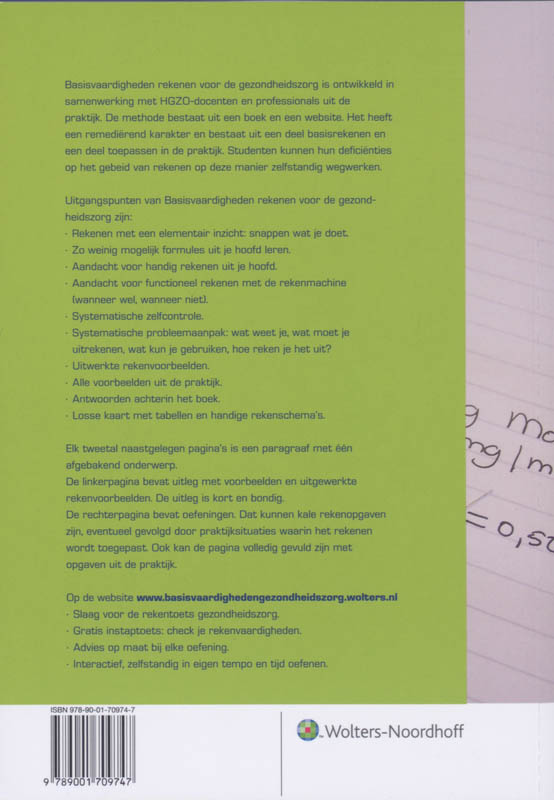 Basisvaardigheden rekenen voor de gezondheidszorg is ontwikkeld in
samenwerking met HGZO-docenten en professionals uit de
praktijk. De methode bestaat uit een boek en een website. Het heeft
een remediërend karakter en bestaat uit een deel basisrekenen en
een deel toepassen in de praktijk. Studenten kunnen hun deficiënties
op het gebeid van rekenen op deze manier zelfstandig wegwerken.
Uitgangspunten van Basisvaardigheden rekenen voor de gezond-
heidszorg zijn:
· Rekenen met een elementair inzicht: snappen wat je doet.
· Zo weinig mogelijk formules uit je hoofd leren.
· Aandacht voor handig rekenen uit je hoofd.
· Aandacht voor functioneel rekenen met de rekenmachine
(wanneer wel, wanneer niet).
· Systematische zelfcontrole.
· Systematische probleemaanpak: wat weet je, wat moet je
uitrekenen, wat kun je gebruiken, hoe reken je het uit?
· Uitwerkte rekenvoorbeelden.
· Alle voorbeelden uit de praktijk.
· Antwoorden achterin het boek.
· Losse kaart met tabellen en handige rekenschema's.
Elk tweetal naastgelegen pagina's is een paragraaf met één
afgebakend onderwerp.
De linkerpagina bevat uitleg met voorbeelden en uitgewerkte
rekenvoorbeelden. De uitleg is kort en bondig.
De rechterpagina bevat oefeningen. Dat kunnen kale rekenopgaven
zijn, eventueel gevolgd door praktijksituaties waarin het rekenen
wordt toegepast. Ook kan de pagina volledig gevuld zijn met
opgaven uit de praktijk.
Op de website www.basisvaardighedengezondheidszorg.wolters.nl
· Slaag voor de rekentoets gezondheidszorg.
· Gratis instaptoets: check je rekenvaardigheden.
· Advies op maat bij elke oefening.
· Interactief, zelfstandig in eigen tempo en tijd oefenen.
mg/m
= 0,5
ISBN 978-90-01-70974-7
9 789001 709747
Wolters-Noordhoff